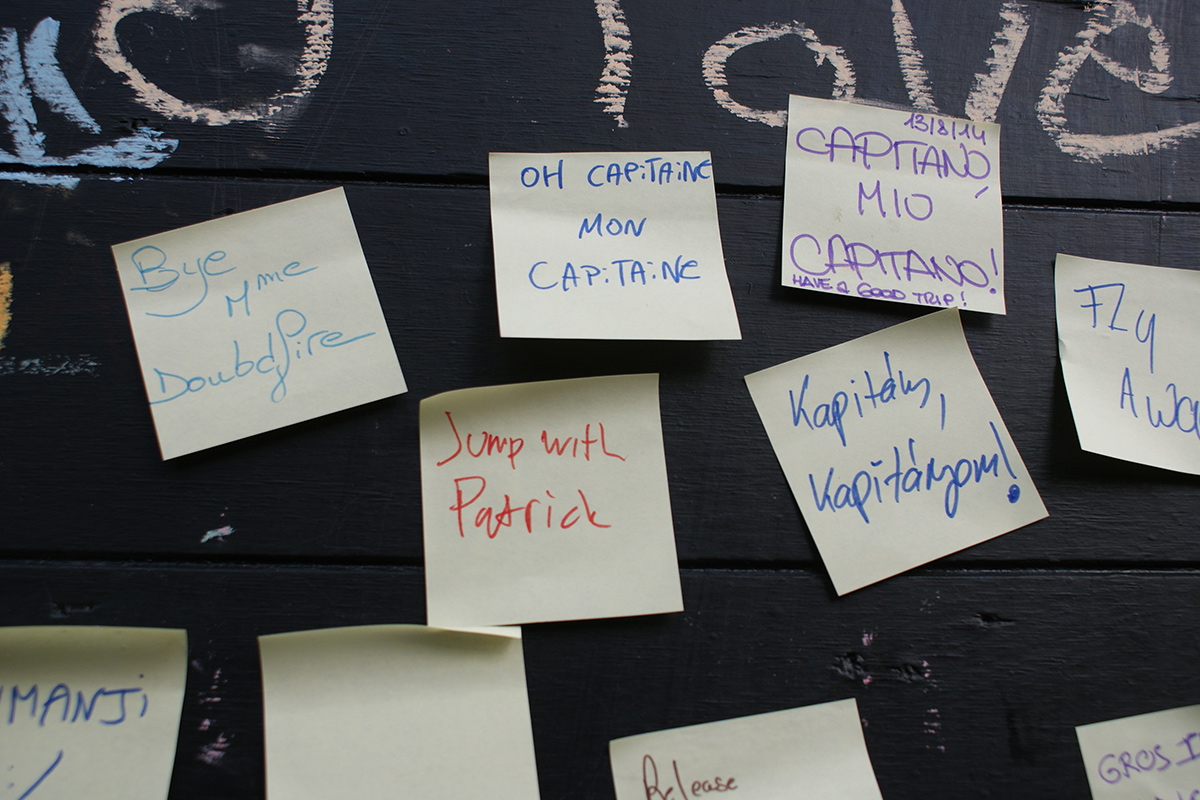 love
13/8/14
CAPITANO,
MIO
CAPITANO!
HAVE a GOOD TRIP!
OH CAPiTAiNE
MON
CAPiTAiNE
Bye
Mme
Doubdfire
Fly
Kapitány,
Kapitányom!
Jump with
Patrick
Release
GROS